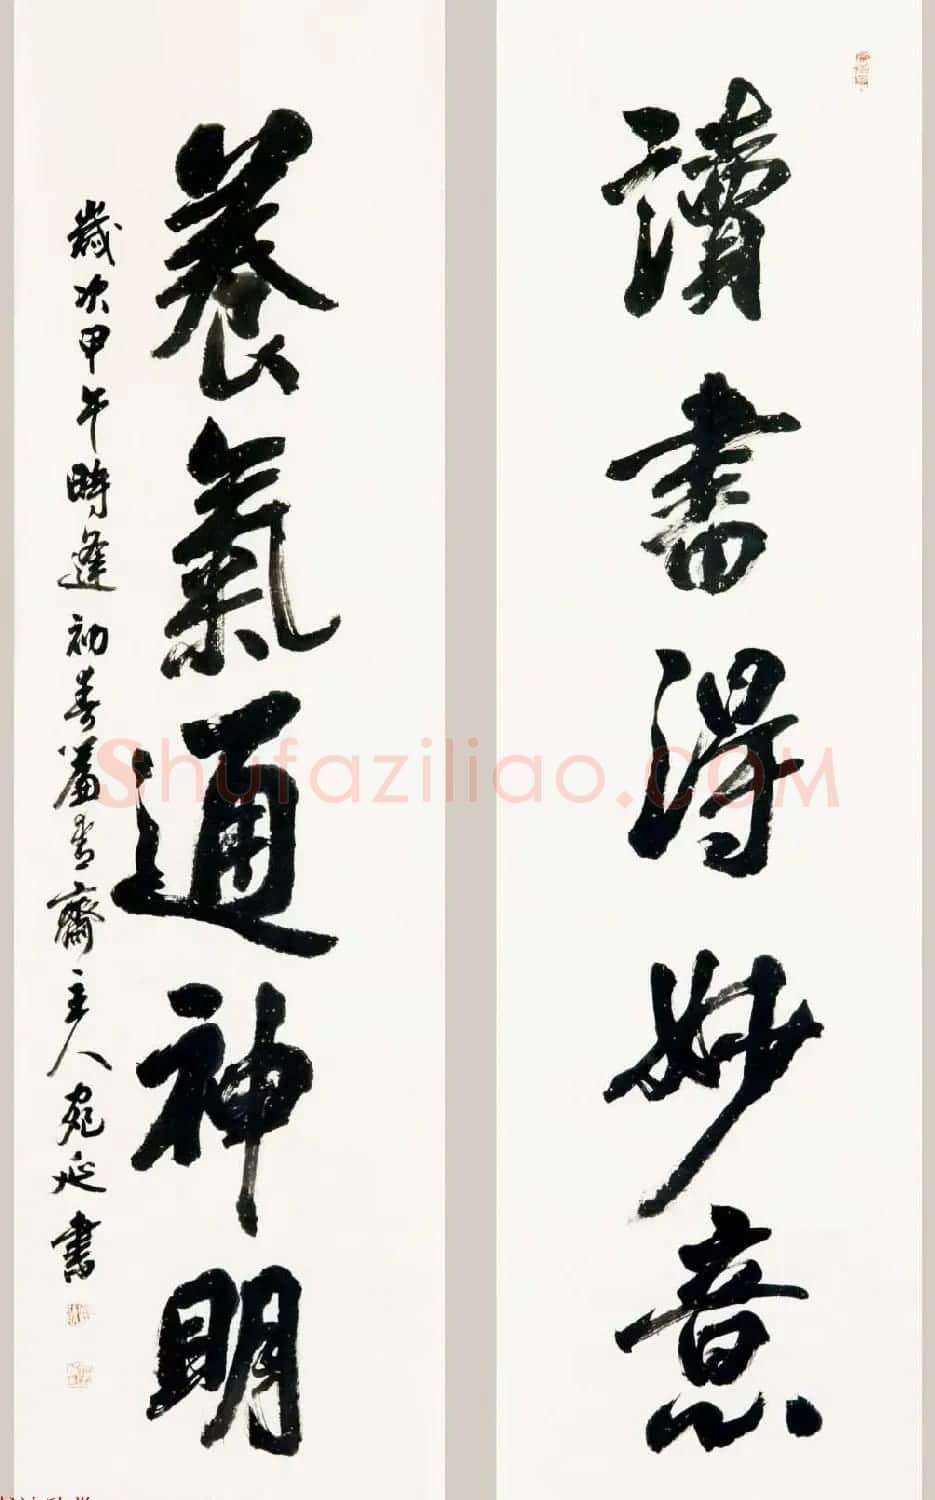 讀書得妙意
養氣通神明
歲次甲午時逢初春青齋主人宛延書
Shufaziliao.COM